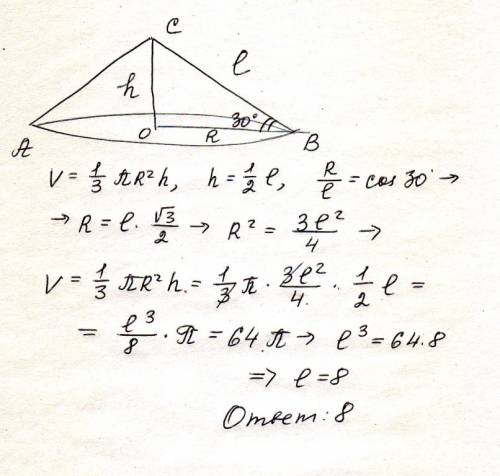 C
h
ℓ
30°
A
O
R
B
V = 1/3 πR²h, h = 1/2 ℓ, R/ℓ = cos 30° →
→ R = ℓ · √3/2 → R² = 3ℓ²/4 →
V = 1/3 πR²h = 1/3 π · 3ℓ²/4 · 1/2 ℓ =
= ℓ³/8 · π = 64 π → ℓ³ = 64·8
=> ℓ = 8
Ответ: 8